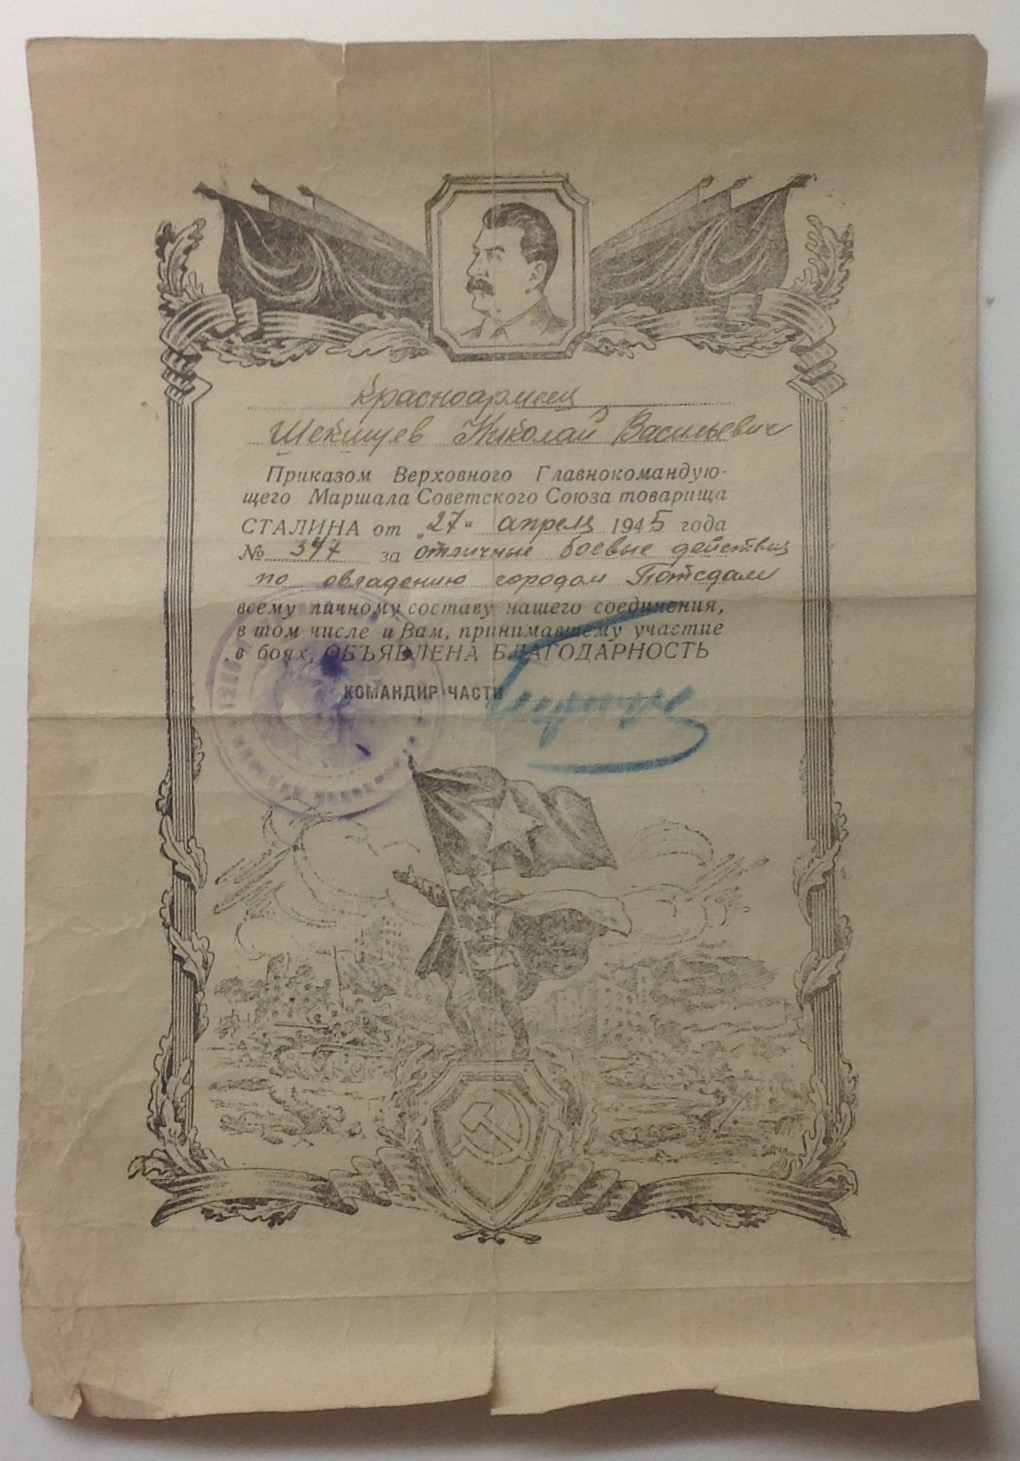 Красноармеец
Шекшуев Николай Васильевич
Приказом Верховного Главнокомандую-
щего Маршала Советского Союза товарища
СТАЛИНА от „27“ апреля 1945 года
№ 347 за отличные боевые действия
по овладению городом Потсдам
всему личному составу нашего соединения,
в том числе и Вам, принимавшему участие
в боях, ОБЪЯВЛЕНА БЛАГОДАРНОСТЬ
КОМАНДИР ЧАСТИ